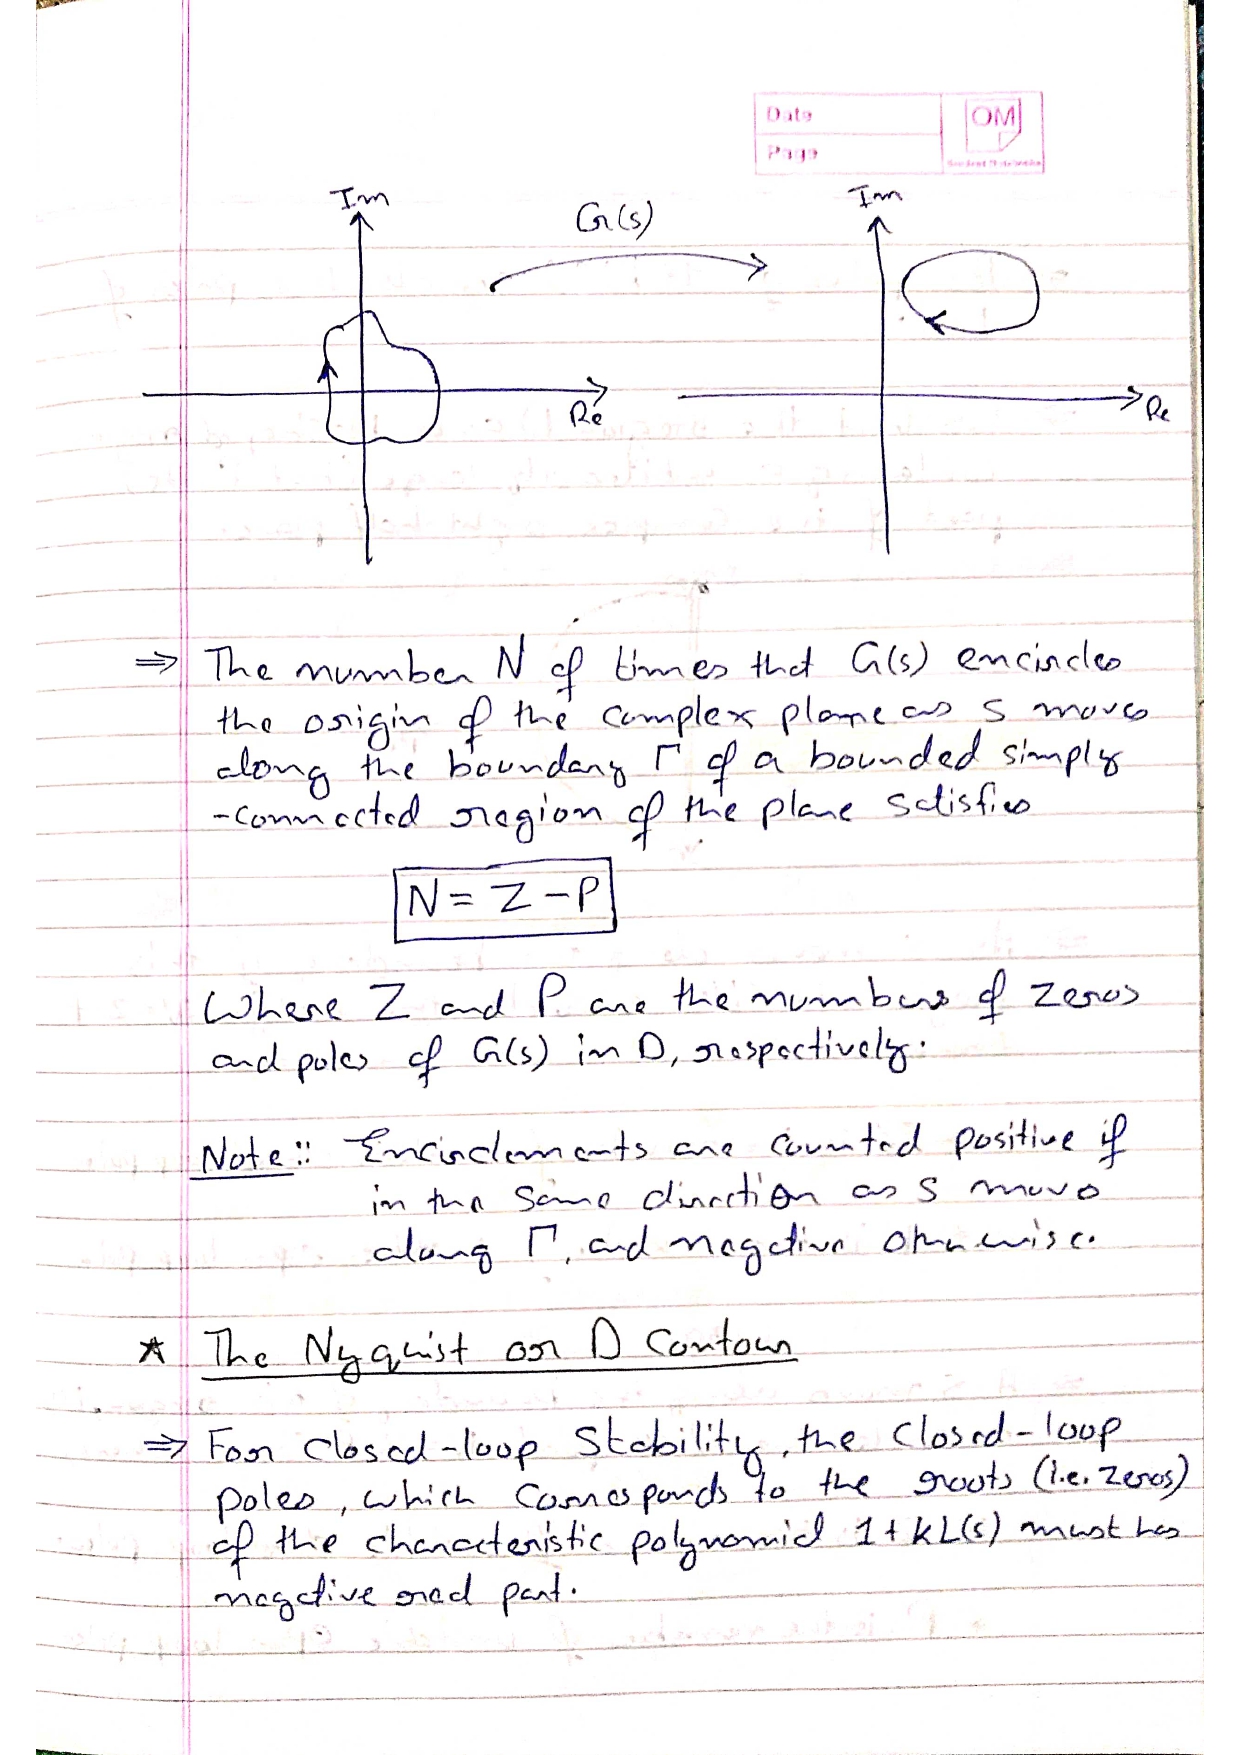 Date
OM
Page
Student Notebooks
Im
G(s)
Im
Re
Re
⇒ The number N of times that G(s) encircles
the origin of the complex plane as s moves
along the boundary Γ of a bounded simply
-connected region of the plane satisfies
N = Z - P
Where Z and P are the numbers of zeros
and poles of G(s) in D, respectively.
Note:: Encirclements are counted positive if
in the same direction as s move
along Γ, and negative otherwise.
* The Nyquist or D Contour
⇒ For closed-loop Stability, the closed-loop
poles, which corresponds to the roots (i.e. zeros)
of the characteristic polynomial 1 + kL(s) must has
negative real part.